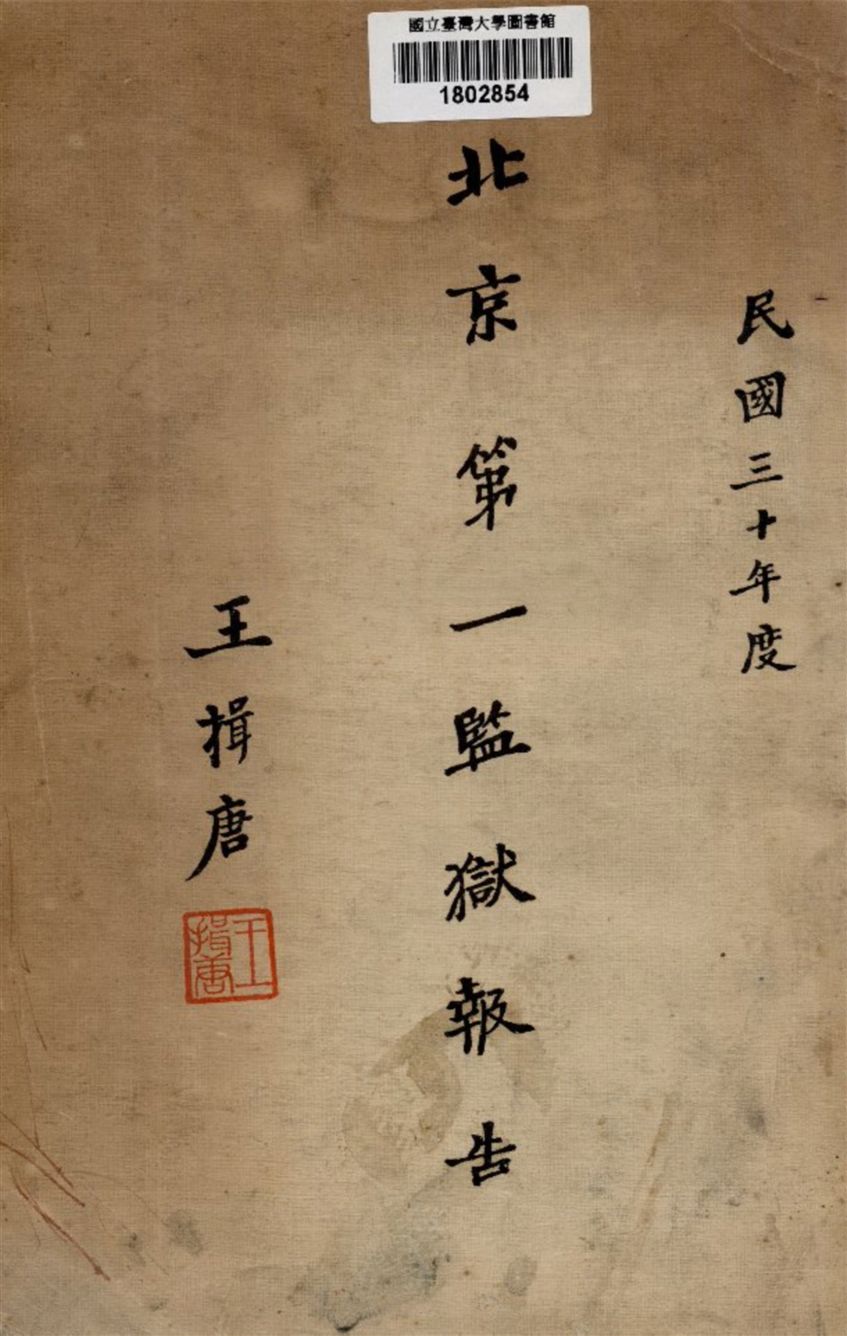 國立臺灣大學圖書館
1802854
民國三十年度
北京第一監獄報告
王揖唐
王揖唐